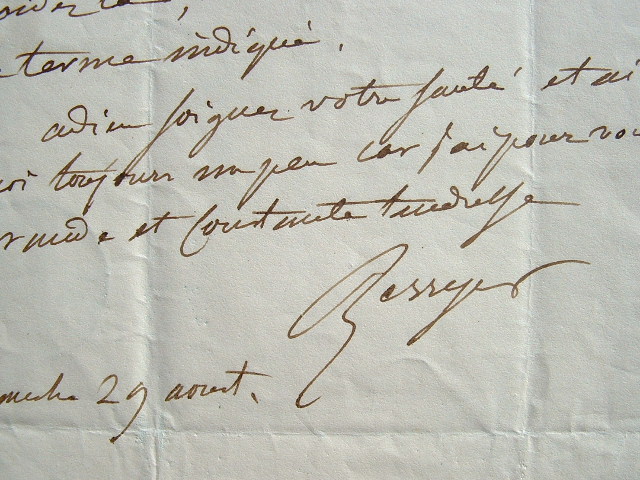 terme indiqué.
adieu soignez votre santé et ai
moi toujours un peu car j'ai pour vou
et constante tendresse
Resseguier
29 aoust.